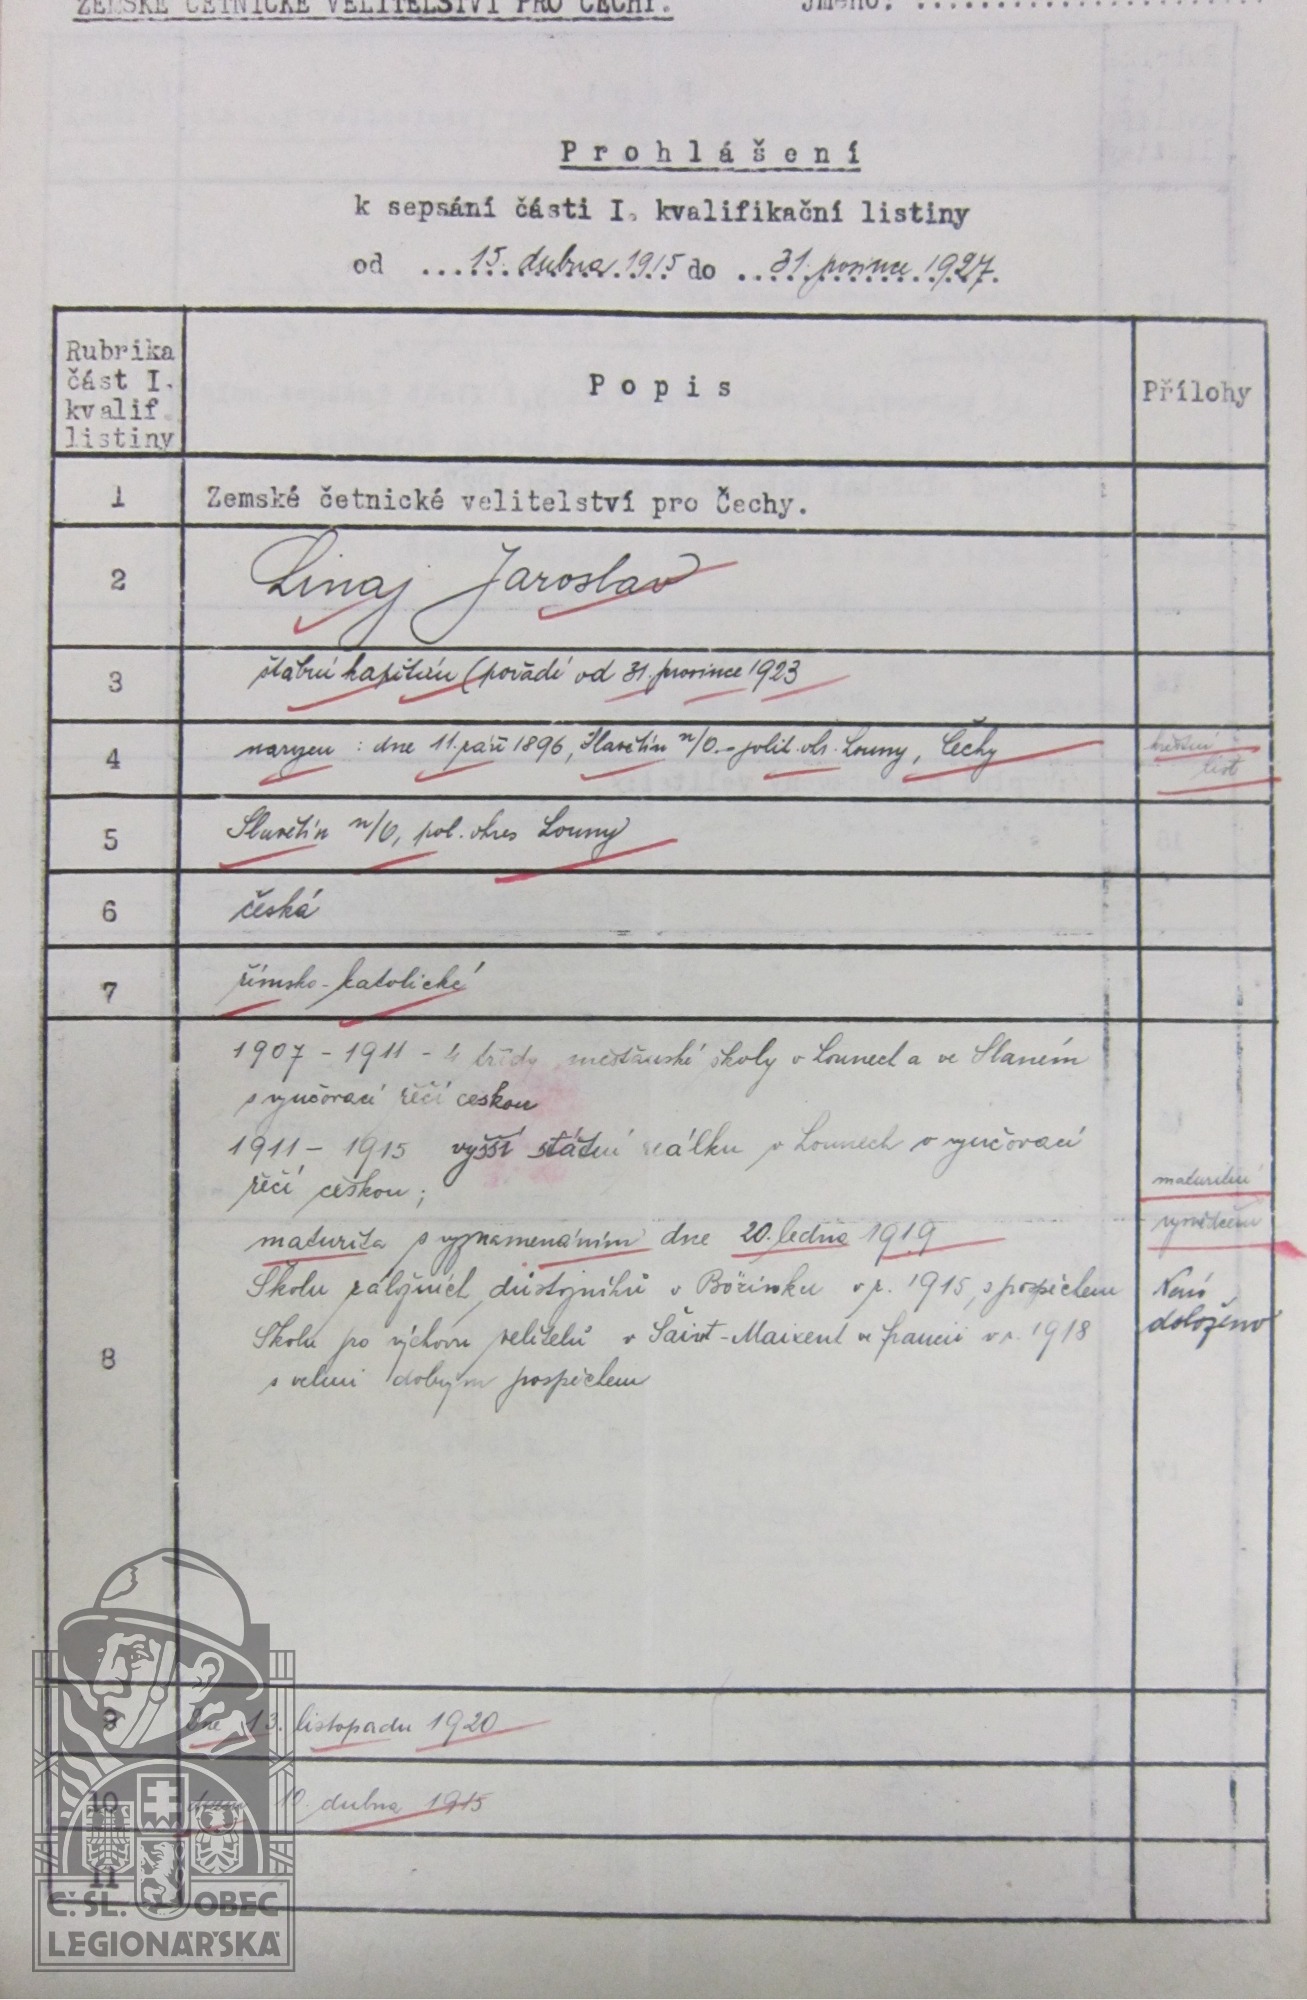 ZEMSKÉ ČETNICKÉ VELITELSTVÍ PRO ČECHY. Jméno: ......................
Prohlášení
k sepsání části I. kvalifikační listiny
od ....15. dubna 1915 do ...31. prosince 1927.
Rubrika část I. kvalif. listiny
Popis
Přílohy
1 Zemské četnické velitelství pro Čechy.
2 Linaj Jaroslav
3 štábní kapitán (pořadí od 31. prosince 1923
4 narozen : dne 11. září 1896, Slavětín n/O. - polit. okr. Louny, Čechy křestní
list
5 Slavětín n/O, pol. okres Louny
6 česká
7 římsko-katolické
1907 - 1911 - 4 třídy měšťanské školy v Lounech a ve Slaném
s vyučovací řečí českou
1911 - 1915 vyšší státní reálku v Lounech s vyučovací
řečí českou; maturitní
maturita s vyznamenáním dne 20. ledna 1919 vysvědčení
Školu záložních důstojníků v r. 1915, s prospěchem Není
8 Školu pro výchovu velitelů v Saint-Maixent ve Francii v r. 1918 doloženo
s velmi dobrým prospěchem
9 Dne 13. listopadu 1920
10 dubna 1915
11
Č.SL. OBEC
LEGIONÁŘSKÁ